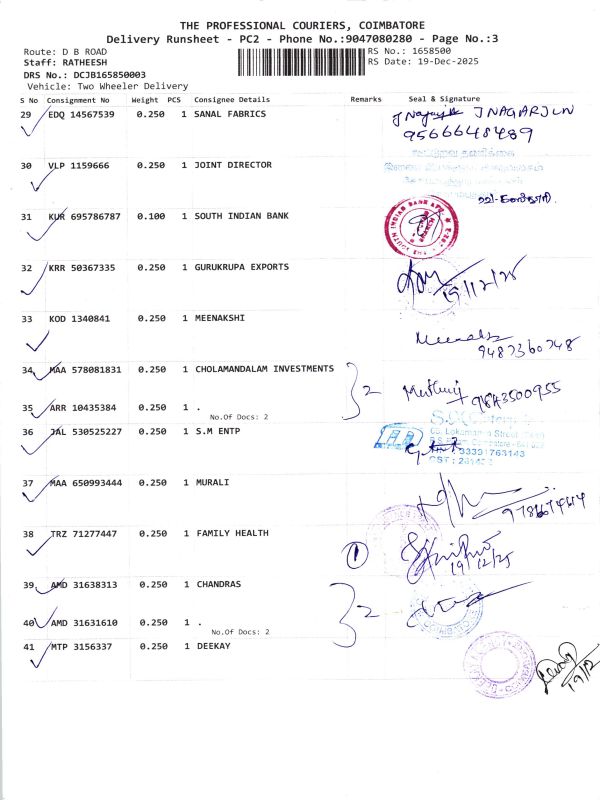 THE PROFESSIONAL COURIERS, COIMBATORE
Delivery Runsheet - PC2 - Phone No.:9047080280 - Page No.:3
Route: D B ROAD
RS No.: 1658500
Staff: RATHEESH
RS Date: 19-Dec-2025
DRS No.: DCJB165850003
Vehicle: Two Wheeler Delivery
S No Consignment No Weight PCS Consignee Details Remarks Seal & Signature
29 EDQ 14567539 0.250 1 SANAL FABRICS
J NAGARJUN
9566648489
30 VLP 1159666 0.250 1 JOINT DIRECTOR
31 KUR 695786787 0.100 1 SOUTH INDIAN BANK
32 KRR 50367335 0.250 1 GURUKRUPA EXPORTS
19/12/25
33 KOD 1340841 0.250 1 MEENAKSHI
9487360748
34 MAA 578081831 0.250 1 CHOLAMANDALAM INVESTMENTS
2 9843500955
35 ARR 10435384 0.250 1 .
No.Of Docs: 2
36 JAL 530525227 0.250 1 S.M ENTP
37 MAA 650993444 0.250 1 MURALI
38 TRZ 71277447 0.250 1 FAMILY HEALTH
1
19/12/25
39 AMD 31638313 0.250 1 CHANDRAS
2
40 AMD 31631610 0.250 1 .
No.Of Docs: 2
41 MTP 3156337 0.250 1 DEEKAY
19/12